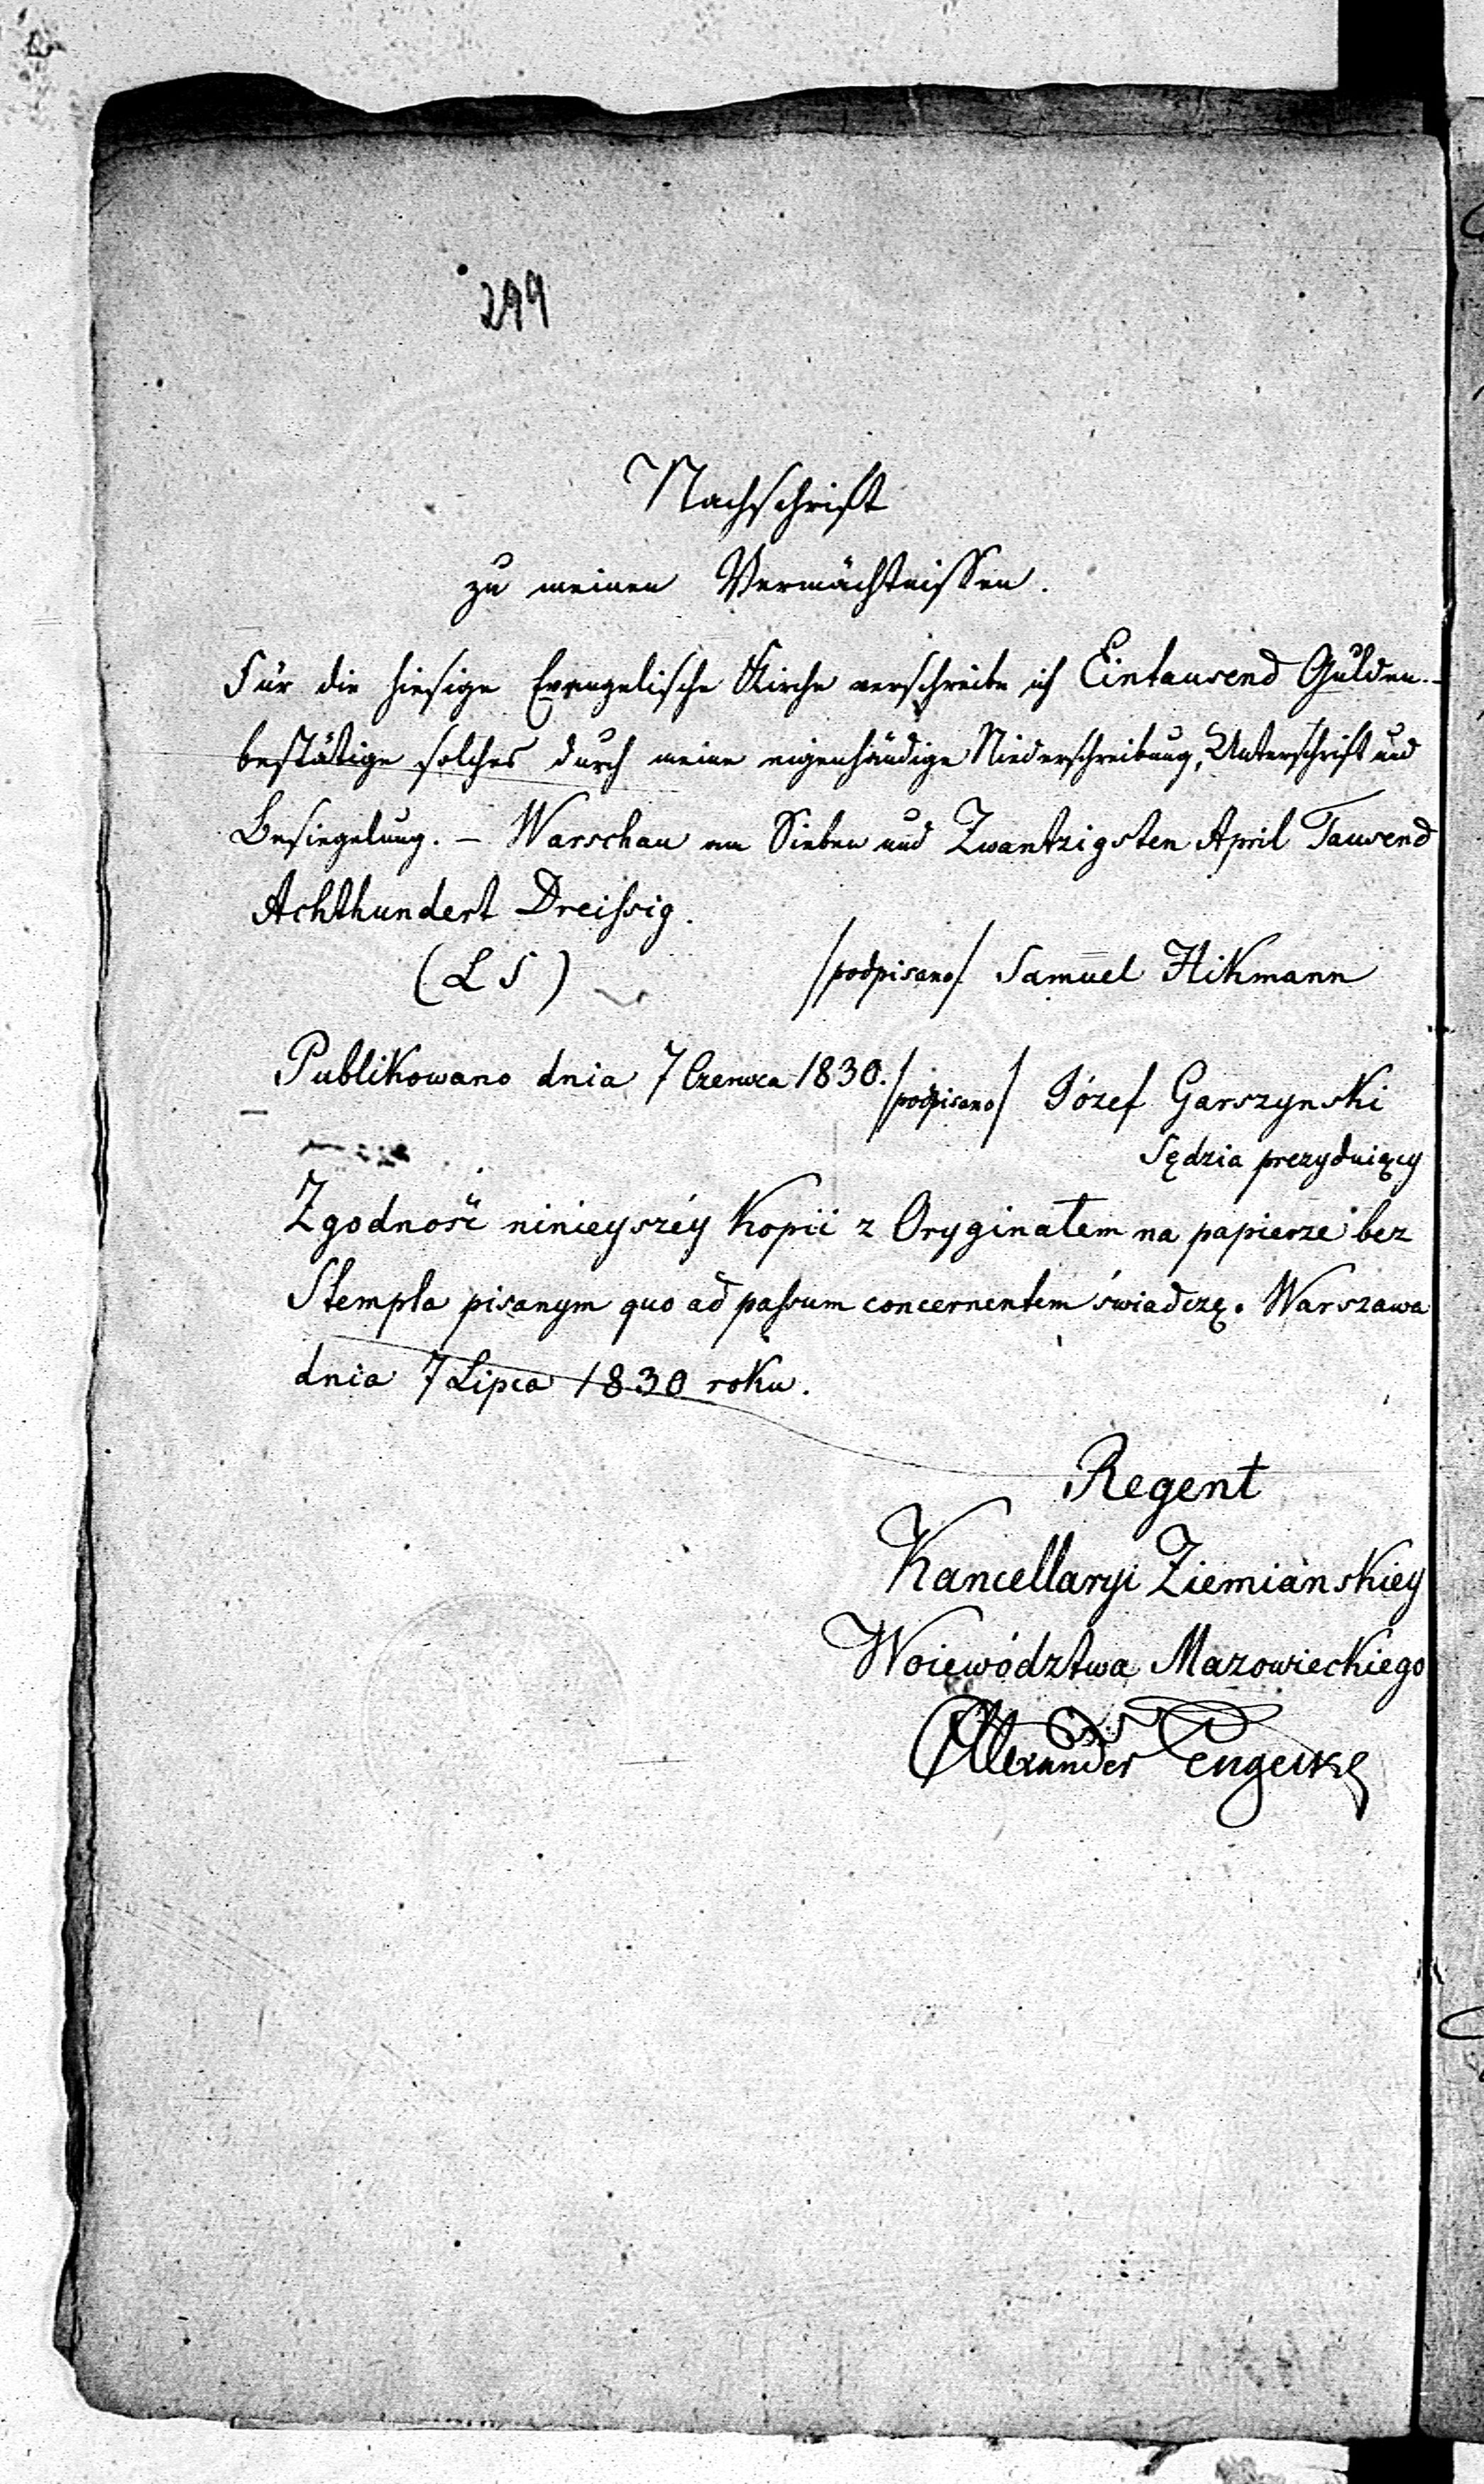 299
Nachschrift
zu meinen Vermächtnissen.
Für die hiesige Evangelische Kirche verschreibe ich Eintausend Gulden.–
bestätige solches durch meine eigenhändige Niederschreibung, Unterschrift und
Besiegelung. – Warschau am Sieben und Zwantzigsten April Tausend
Achthundert Dreissig.
(L S) /podpisano/ Samuel Hikmann
Publikowano dnia 7 Czerwca 1830. /podpisano/ Józef Garszynski
Sędzia prezyduiący
Zgodność ninieyszéy Kopii z Oryginałem na papierze bez
Stempla pisanym quo ad passum concernentem świadczę. Warszawa
dnia 7 Lipca 1830 roku.
Regent
Kancellaryi Ziemiańskiey
Woiewództwa Mazowieckiego
Alexander Engelke